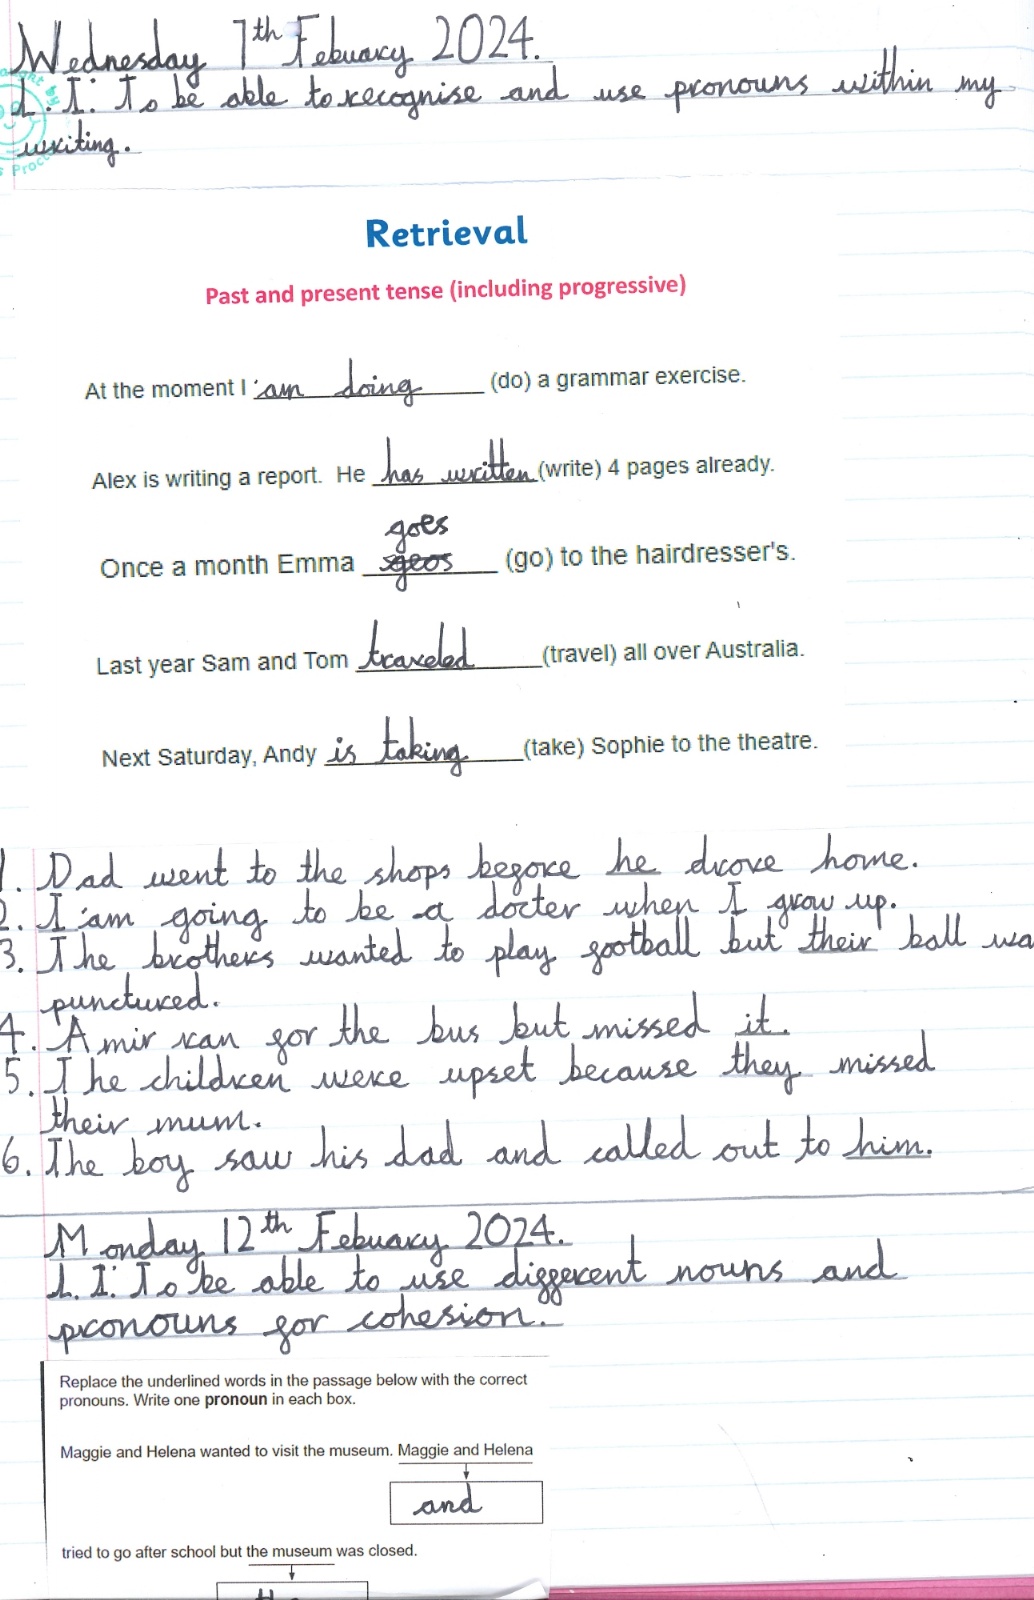 Wednesday 7th Febuary 2024.
L.I: To be able to recognise and use pronouns within my
writing.
Retrieval
Past and present tense (including progressive)
At the moment I am doing (do) a grammar exercise.
Alex is writing a report. He has written (write) 4 pages already.
goes
Once a month Emma geos (go) to the hairdresser's.
Last year Sam and Tom traveled (travel) all over Australia.
Next Saturday, Andy is taking (take) Sophie to the theatre.
1. Dad went to the shops before he drove home.
2. I am going to be a docter when I grow up.
3. The brothers wanted to play football but their ball wa
punctured.
4. Amir ran for the bus but missed it.
5. The children were upset because they missed
their mum.
6. The boy saw his dad and called out to him.
Monday 12th Febuary 2024.
L.I: To be able to use different nouns and
pronouns for cohesion.
Replace the underlined words in the passage below with the correct
pronouns. Write one pronoun in each box.
Maggie and Helena wanted to visit the museum. Maggie and Helena
and
tried to go after school but the museum was closed.